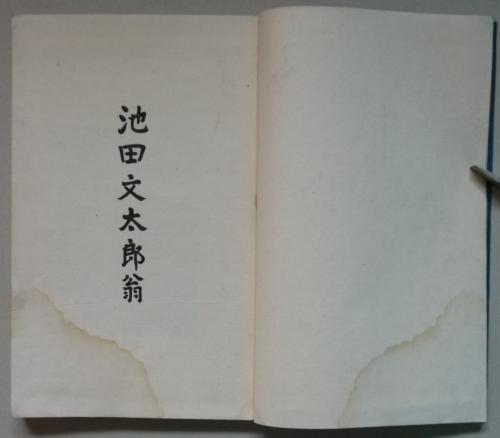 池田文太郎翁